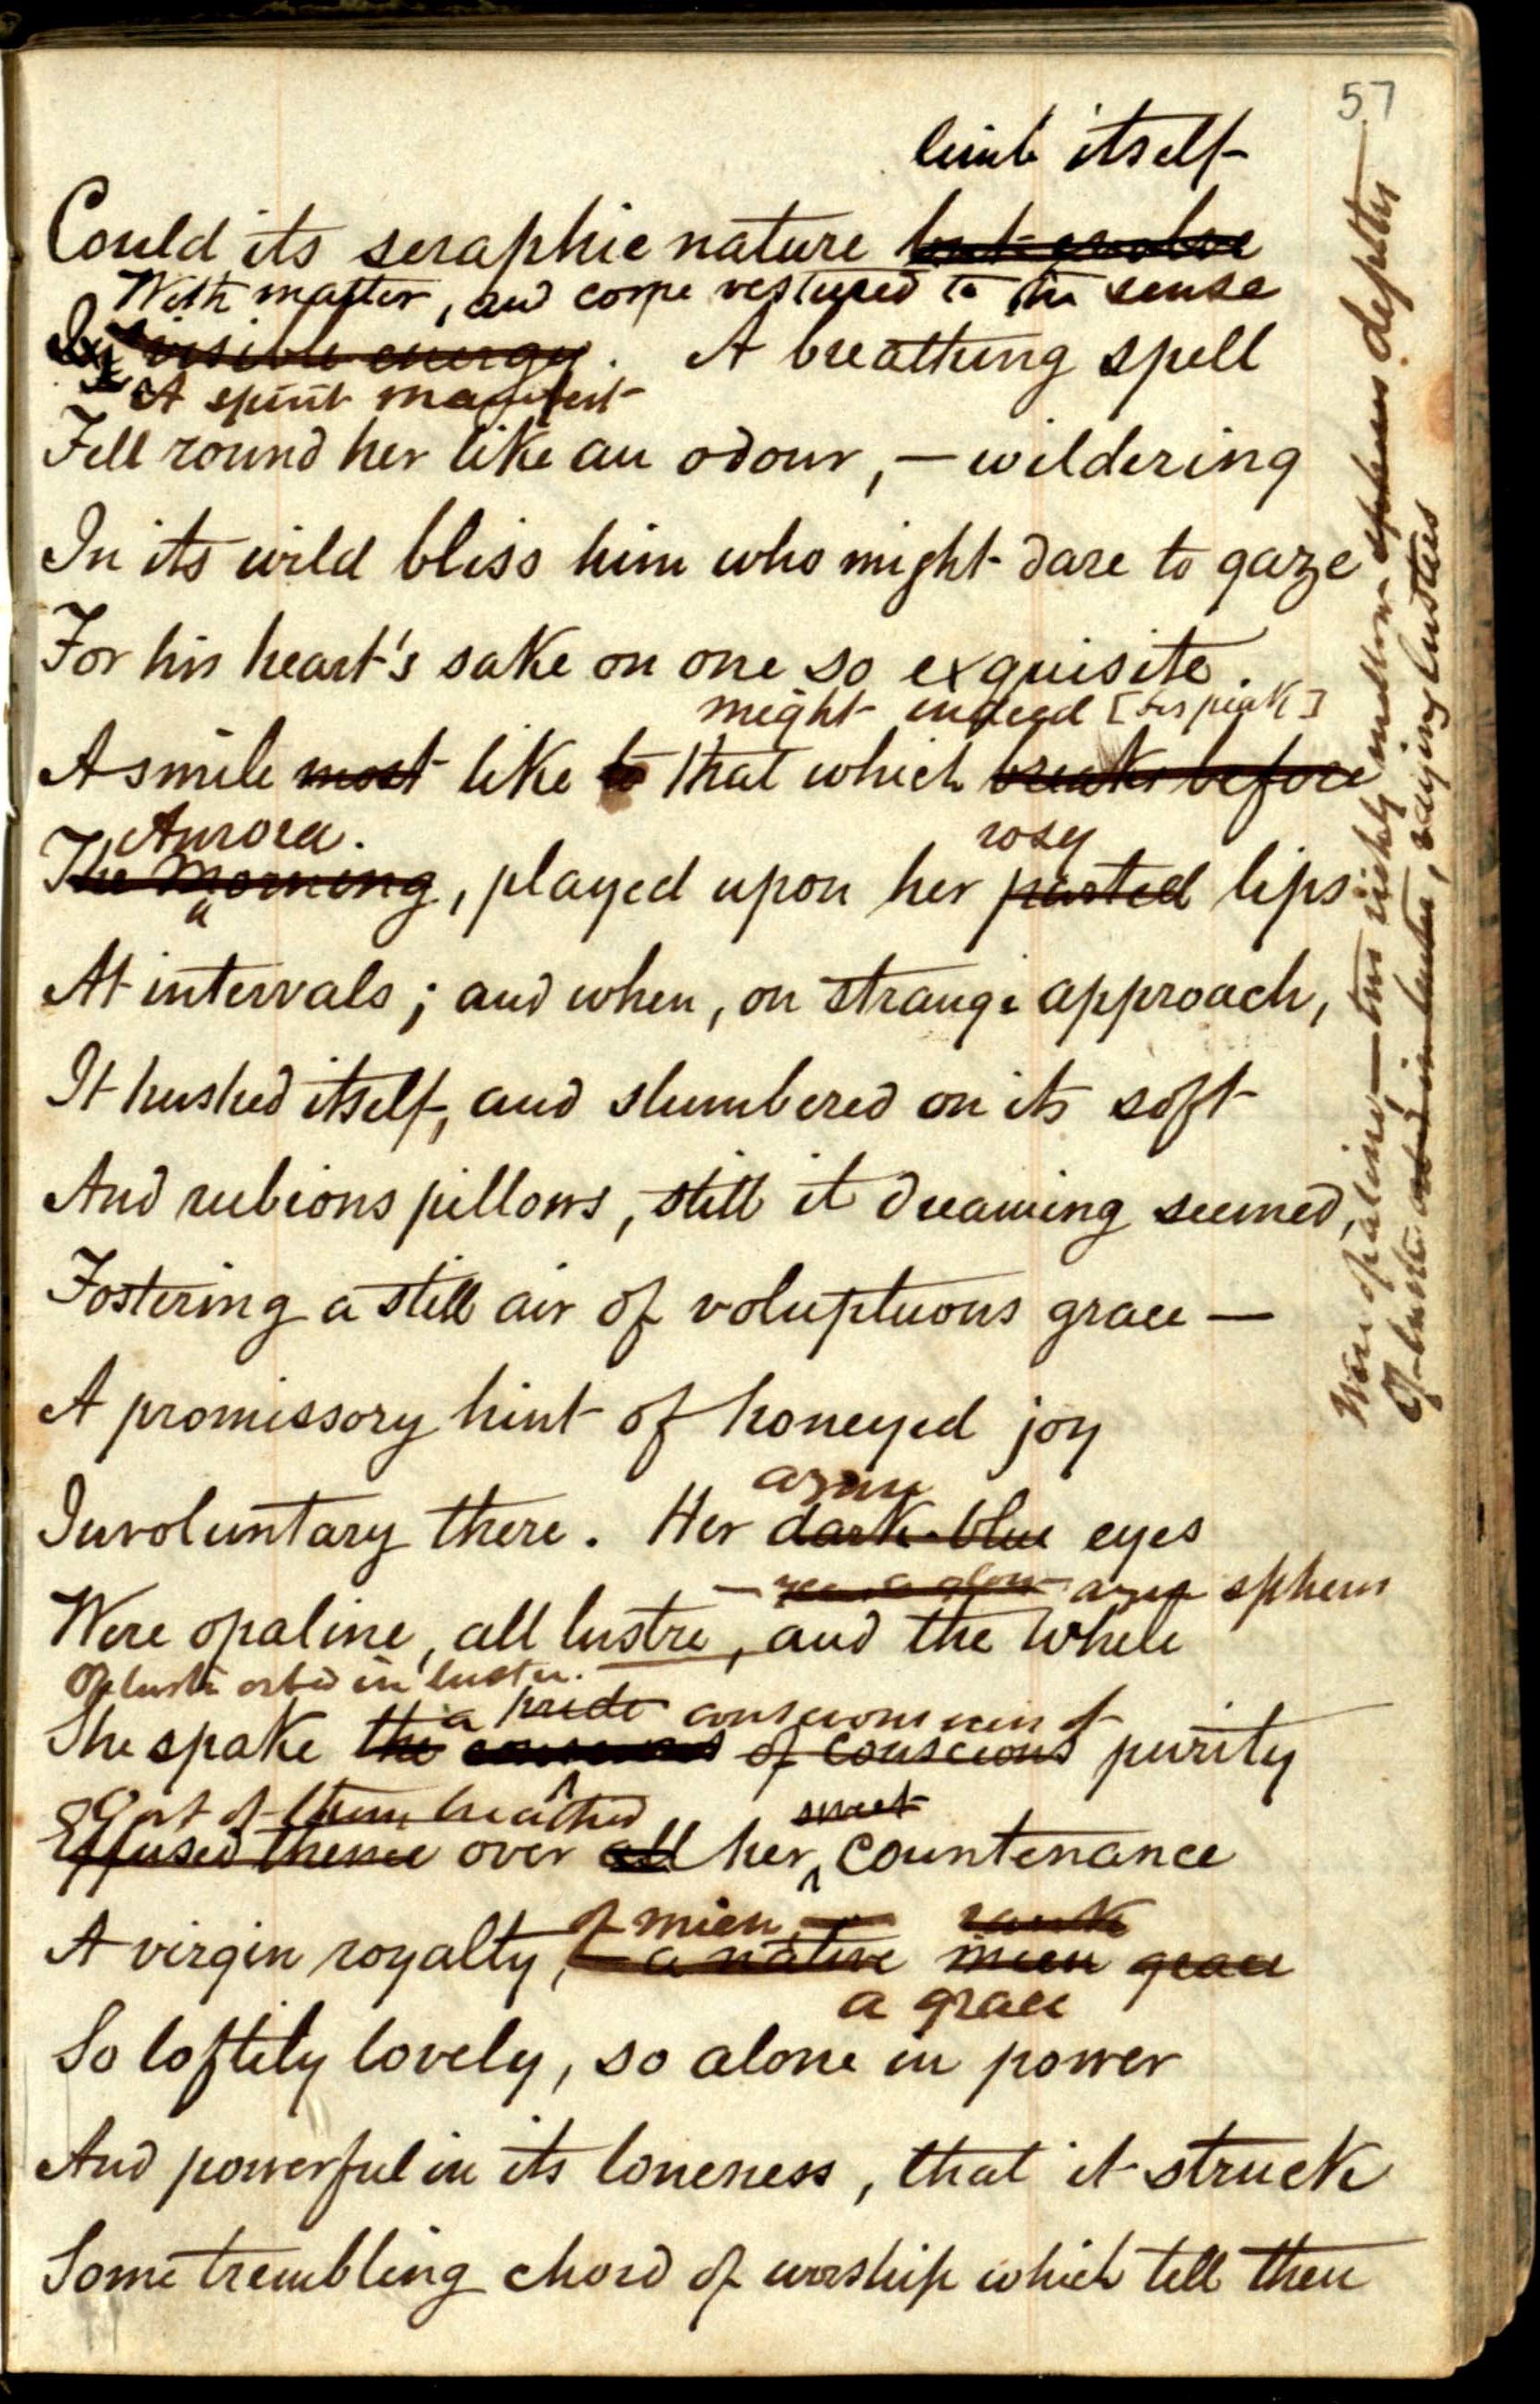 57
limb itself
Could its seraphic nature but evolve
With matter, and come vestured to the sense
visible energy. A breathing spell
A spirit manifest
Fell round her like an odour, — wildering
In its wild bliss him who might dare to gaze
For his heart's sake on one so exquisite.
might indeed [bespeak]
A smile most like to that which breaks before
Aurora. rosy
The Morning, played upon her parted lips
At intervals; and when, on strange approach,
It hushed itself, and slumbered on its soft
And rubious pillows, still it dreaming seemed,
Fostering a still air of voluptuous grace —
A promissory hint of honeyed joy
azure
Involuntary there. Her dark-blue eyes
azure spheres
Were opaline, all lustre, and the while
Of lustre orbed in lustre.
a pride consciousness of
She spake the conscious of conscious purity
Out of them breathed sweet
Effused thence over all her countenance
of mien
A virgin royalty, — a native mien grace
a grace
So loftily lovely, so alone in power
And powerful in its loneness, that it struck
Some trembling chord of worship which tell then
Were opaline — two richly mellow spheres depths
Of lustre orbed in lustre, raying lustres